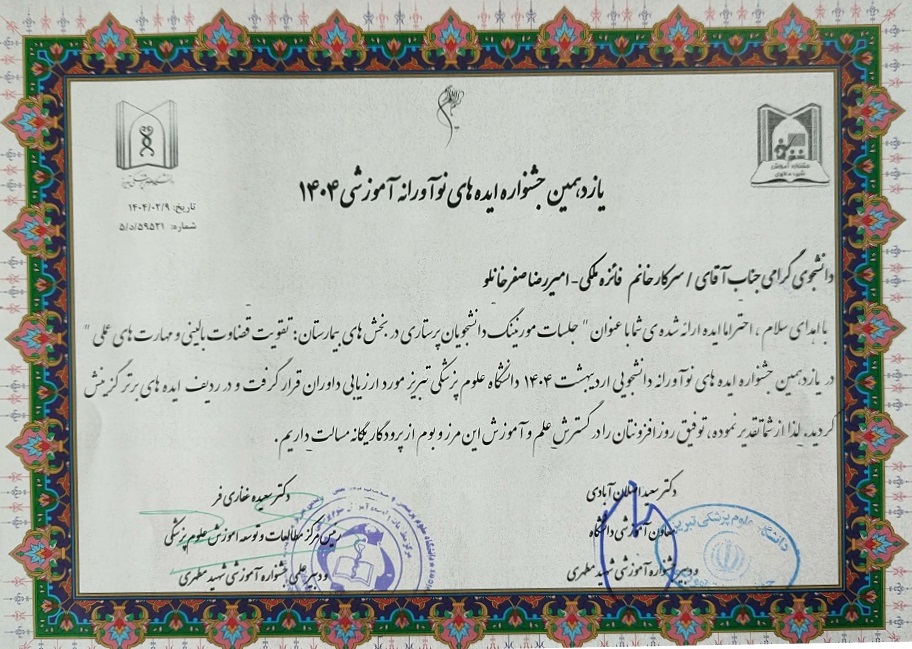 جشنواره آموزشی
شهید مطهری
دانشگاه علوم پزشکی تبریز
تاریخ: ۱۴۰۴/۰۲/۹
شماره: ۵/د/۵۹۵۲۱
یازدهمین جشنواره ایده های نوآورانه آموزشی ۱۴۰۴
دانشجوی گرامی جناب آقای / سرکار خانم فائزه ملکی - امیررضا صفرخانلو
با اهدای سلام ، احتراما ایده ارائه شده ی شما با عنوان " جلسات مورنینگ دانشجویان پرستاری در بخش های بیمارستان: تقویت قضاوت بالینی و مهارت های عملی "
در یازدهمین جشنواره ایده های نوآورانه دانشجویی اردیبهشت ۱۴۰۴ دانشگاه علوم پزشکی تبریز مورد ارزیابی داوران قرار گرفت و در ردیف ایده های برتر گزینش
گردید. لذا از شما تقدیر نموده، توفیق روز افزونتان را در گسترش علم و آموزش این مرز و بوم از پرودگار یگانه مسالت داریم .
دکتر سعید اصلان آبادی
معاون آموزشی دانشگاه
و دبیر جشنواره آموزشی شهید مطهری
دکتر سعیده غفاری فر
رئیس مرکز مطالعات و توسعه آموزش علوم پزشکی
و دبیر علمی جشنواره آموزشی شهید مطهری
دانشگاه علوم پزشکی تبریز